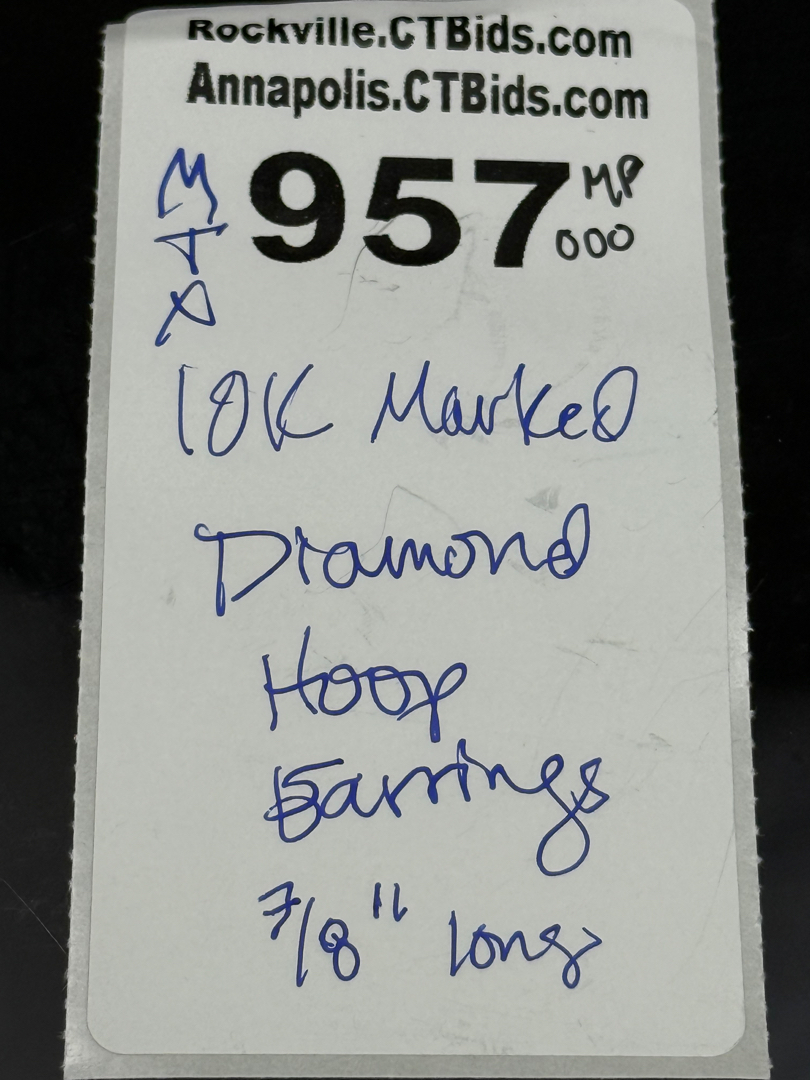 Rockville.CTBids.com
Annapolis.CTBids.com
957
MP
000
10K Marked
Diamond
Hoop
Earrings
7/8" long